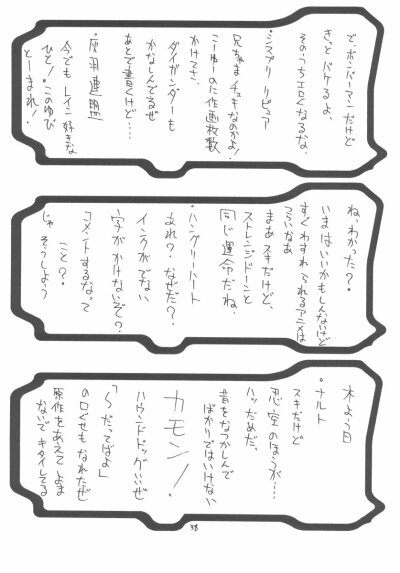 で・ボンバーマンだけど
きっとバケるよ、
そのうちエロくなるな.
・シスプリ リピュア
兄ちゃまチュキなのかよ!
こーゆーのに作画枚数
かけてさ.
ダイガンダーも
かなしんでるぜ
あとで書くけど…
・灰羽連盟
今でもレイン好きな
ひと!このゆび
とーまれ!
ね、わかった?
いまはいいかもしんないけど
すぐわすれられるアニメは
つらいなあ
まあスキだけど、
ストレンジドーンと
同じ運命だね.
・ハングリーハート
あれ?なぜだ?
インクがでない
字がかけないぞ?
コメントするなって
こと?
じゃそうしよう
木よう日
・ナルト
スキだけど
忍空のほうが…
ハッだめだ、
昔をなつかしんで
ばかりではいけない
カモン!
ハウンドドッグいいぜ
「〜だってばよ」
の口ぐせもなれたぜ
原作をあえてよま
ないでキタイしてる
38